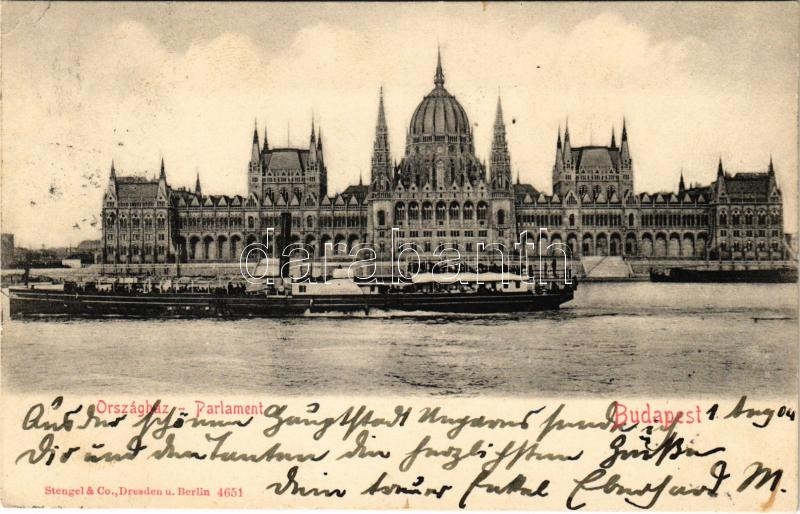 darabanth
Országház - Parlament
Budapest 1 Aug 04
Aus der schönen Hauptstadt Ungarns sende ich
Dir und den Tanten die herzlichsten Grüße
Dein treuer Enkel Eberhard M.
Stengel & Co., Dresden u. Berlin 4651